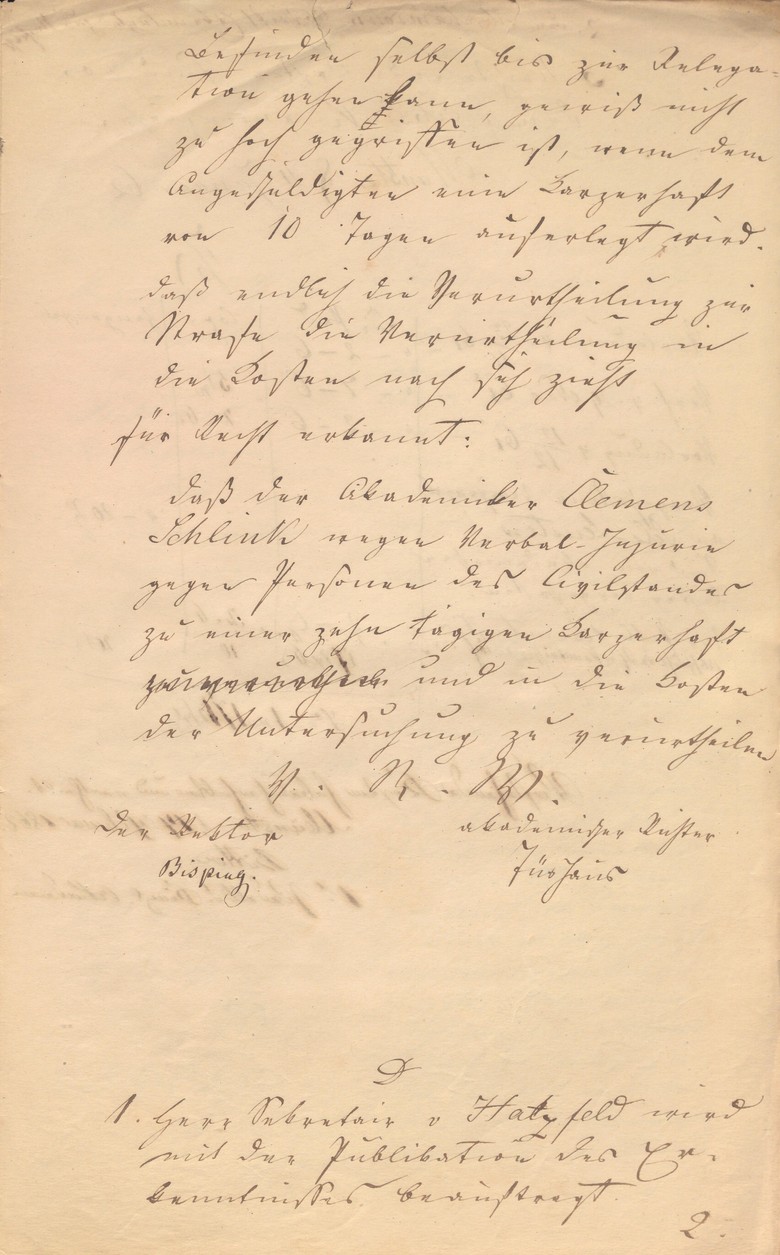 Befinden selbst bis zur Relega-
tion gehen kann, gewiß nicht
zu hoch gegriffen ist, wenn dem
Angeschuldigten eine Karzerhaft
von 10 Tagen auferlegt wird.
daß endlich die Verurtheilung zur
Strafe die Verurtheilung in
die Kosten nach sich zieht
für Recht erkannt:
daß der Akademiker Clemens
Schlink wegen Verbal-Injurie
gegen Personen des Civilstandes
zu einer zehn tägigen Karzerhaft
und in die Kosten
der Untersuchung zu verurtheilen
V. R. W.
Der Rektor akademischer Richter
Bisping.
D
1. Herr Sekretair v Hatzfeld wird
mit der Publikation des Er-
kenntnisses beauftragt.
2.